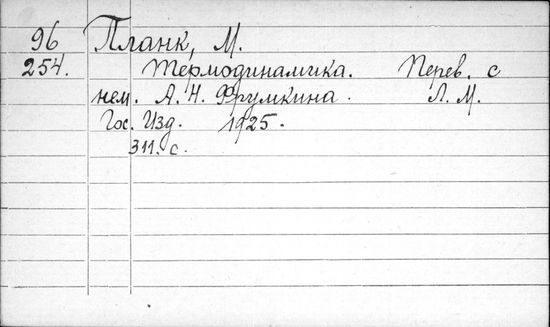 96 Планк, М.
254. Термодинамика. Перев. с
нем. А. Н. Фрумкина. Л. М.
Гос. Изд. 1925.
311. с.